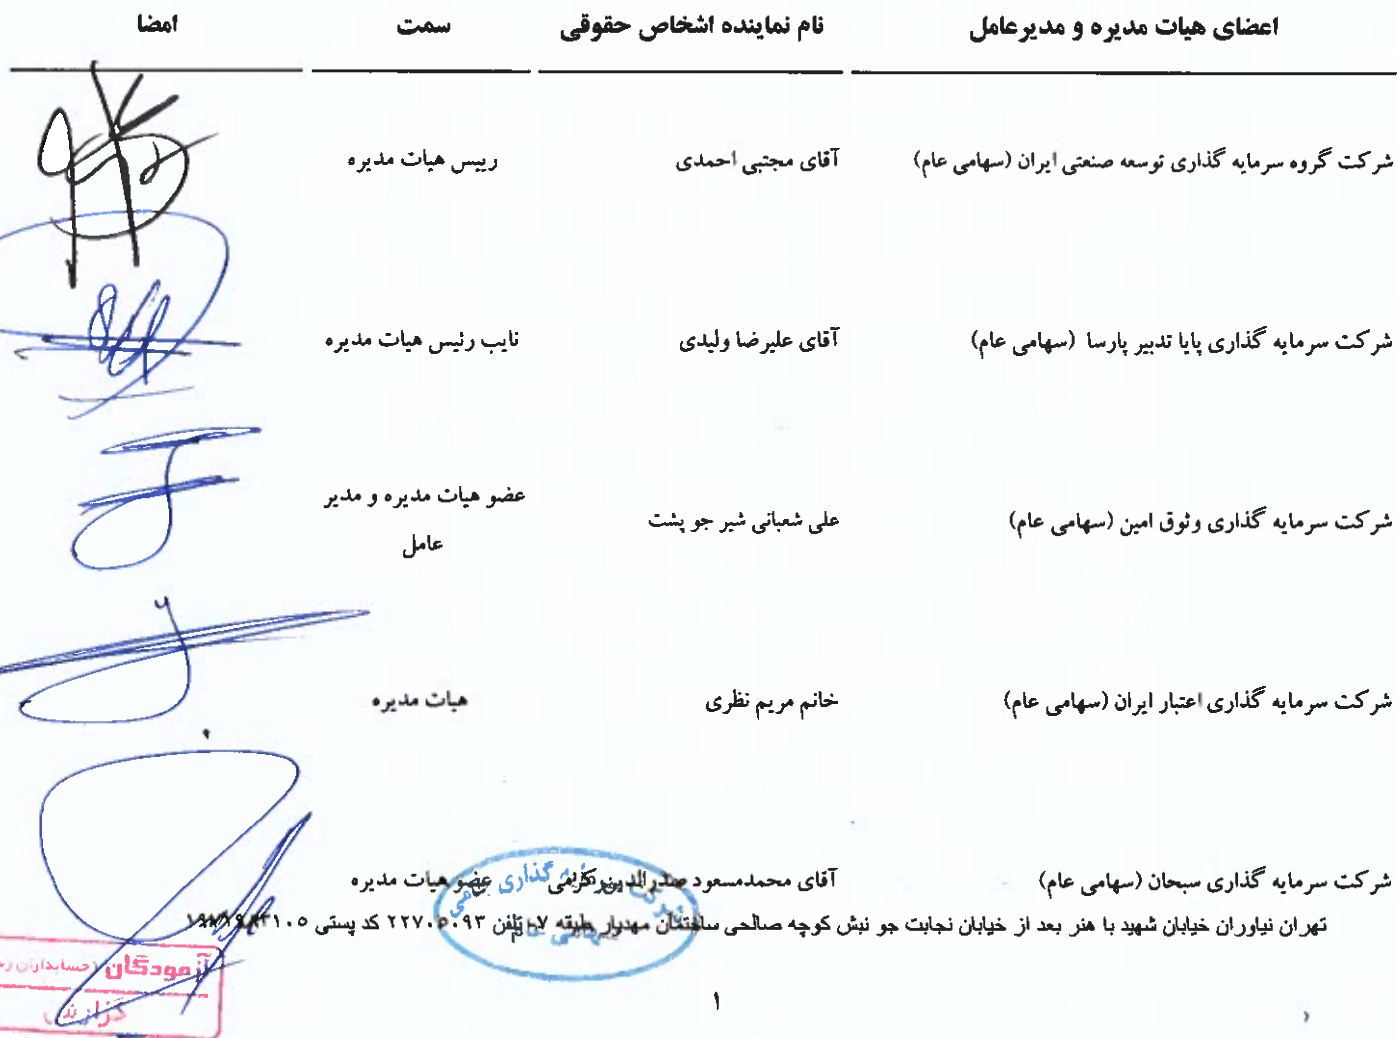 اعضای هیات مدیره و مدیرعامل نام نماینده اشخاص حقوقی سمت امضا
شرکت گروه سرمایه گذاری توسعه صنعتی ایران (سهامی عام) آقای مجتبی احمدی رییس هیات مدیره
شرکت سرمایه گذاری پایا تدبیر پارسا (سهامی عام) آقای علیرضا ولیدی نایب رئیس هیات مدیره
شرکت سرمایه گذاری وثوق امین (سهامی عام) علی شعبانی شیر جو پشت عضو هیات مدیره و مدیر
عامل
شرکت سرمایه گذاری اعتبار ایران (سهامی عام) خانم مریم نظری هیات مدیره
شرکت سرمایه گذاری سبحان (سهامی عام) آقای محمدمسعود صدرالدین کرمی عضو هیات مدیره
تهران نیاوران خیابان شهید با هنر بعد از خیابان نجابت جو نبش کوچه صالحی ساختمان مهدیار طبقه ۷- تلفن ۲۲۷۰۵۰۹۳ کد پستی
گذاری
آزمودگان
گزارش
۱